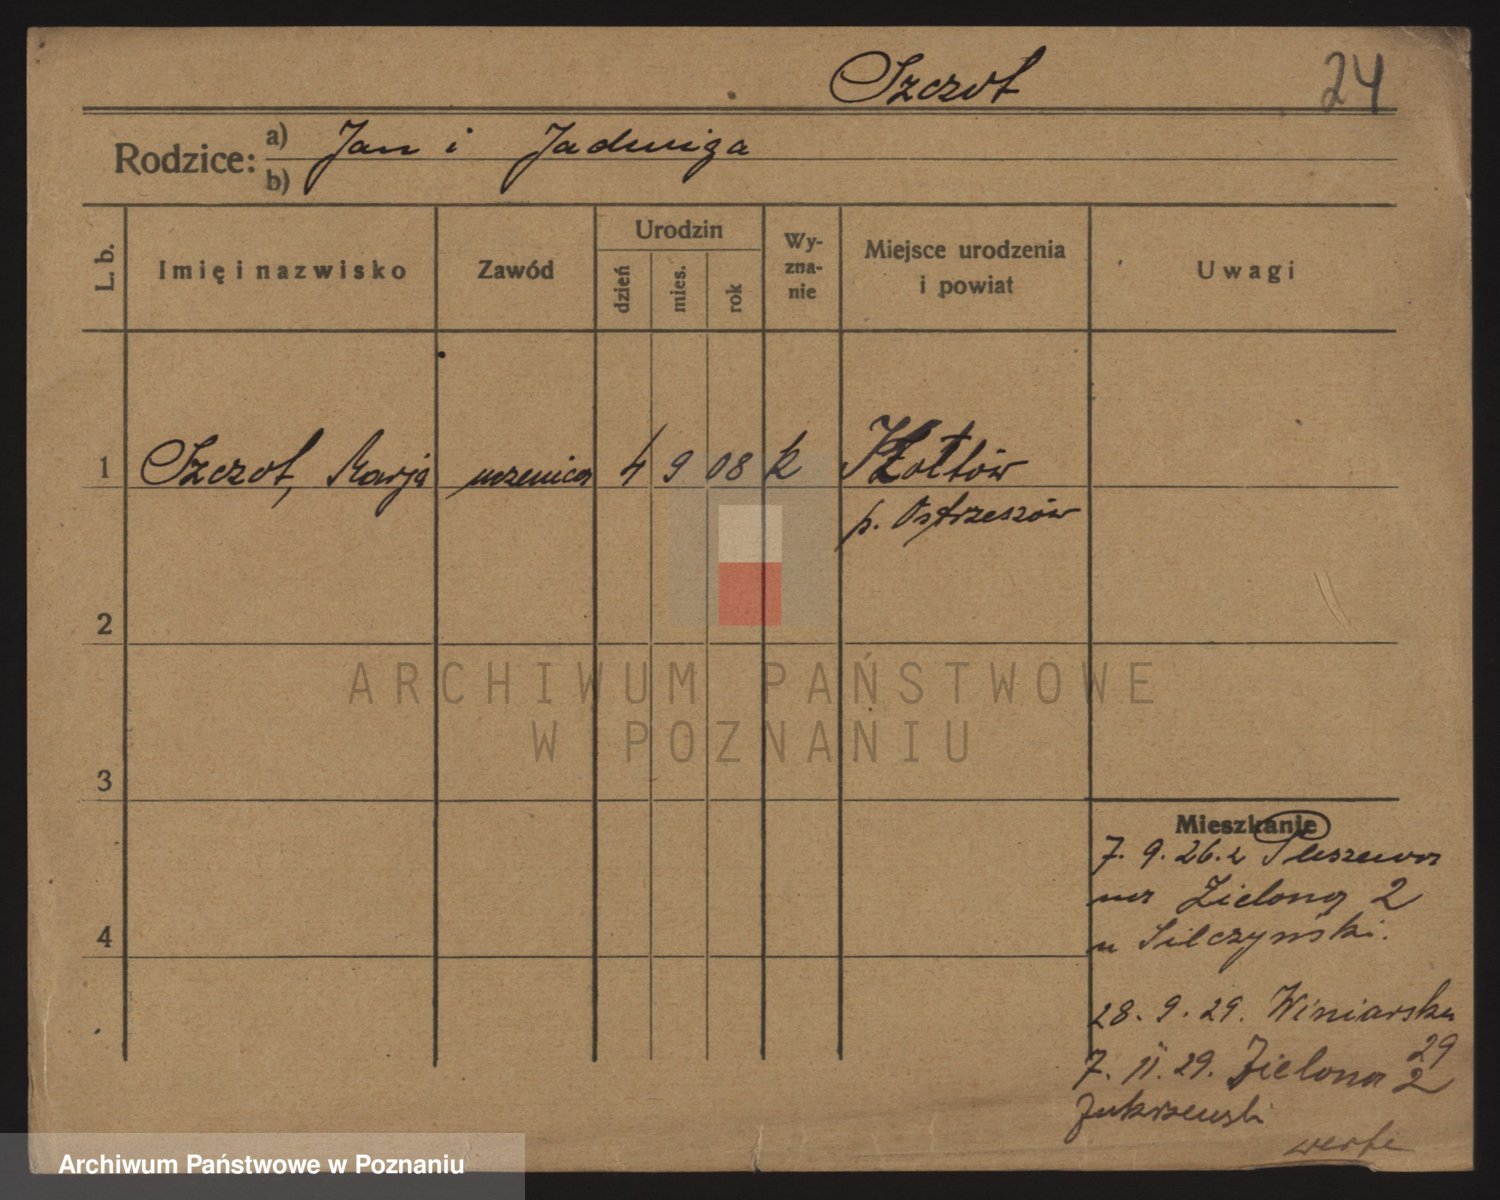 Szczot
24
Rodzice: a) Jan i Jadwiga
b)
L. b.
Imię i nazwisko
Zawód
Urodzin
dzień
mies.
rok
Wy-
zna-
nie
Miejsce urodzenia
i powiat
Uwagi
1 Szczot, Marja uczenica 4 9 08 k
p. Ostrzeszów
2
3
4
Mieszkanie
7. 9. 26. z Pleszewa
na Zieloną 2
u Silczyński.
28. 9. 29. Winiarska
29
7. 11. 29. Zielona 2
Zakrzewski
ARCHIWUM PAŃSTWOWE
W POZNANIU
Archiwum Państwowe w Poznaniu